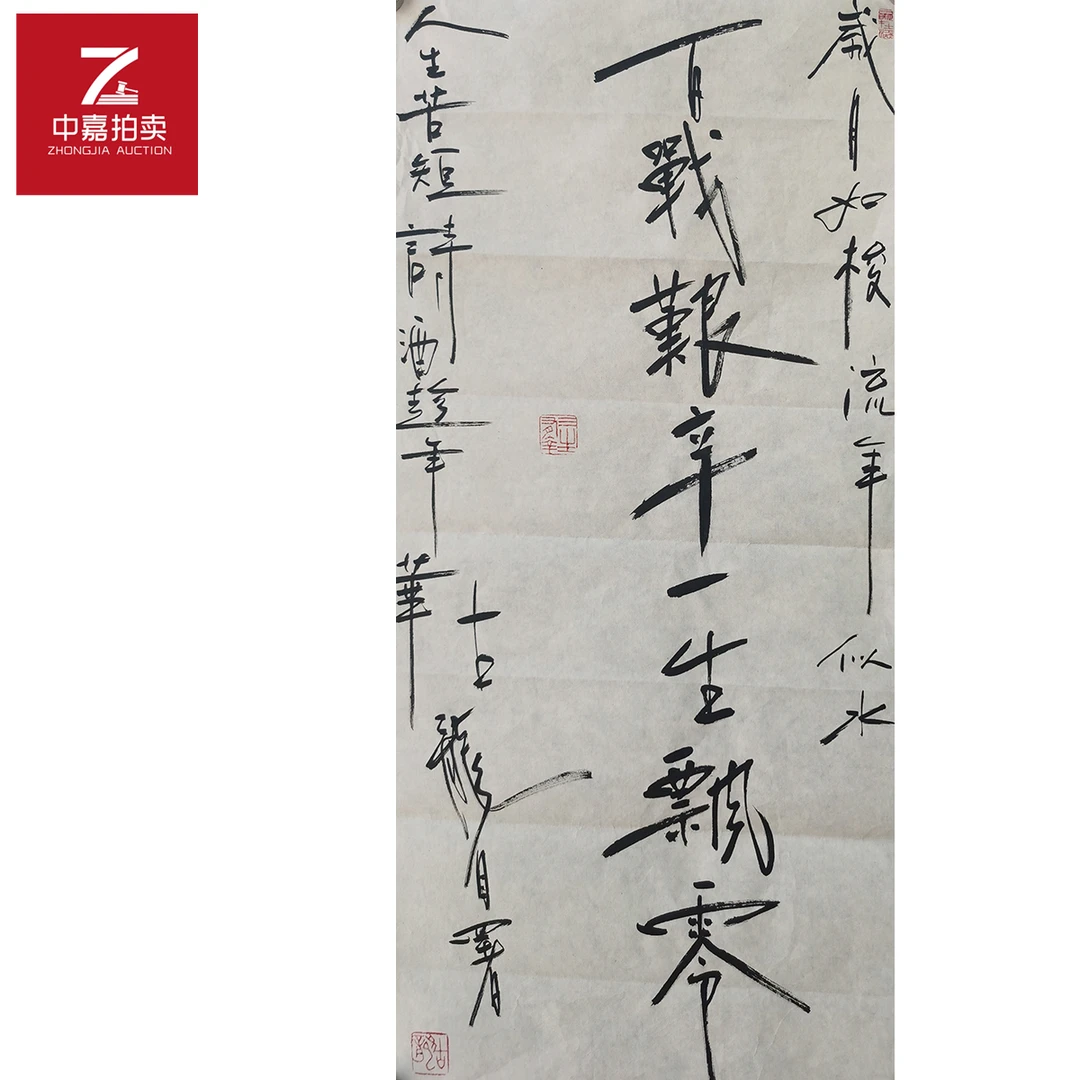 中嘉拍卖
ZHONGJIA AUCTION
歲月如梭流年似水
百戰艱辛一生飄零
人生苦短詩酒趁年華
古龍自署